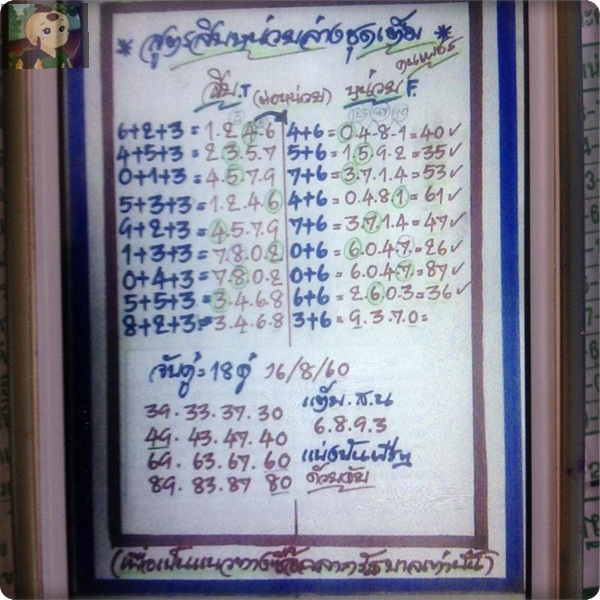 * สูตรสิบหน่วยล่างชุดเต็ม *
สิบ.T (ต่อหน่วย) หน่วย F.
6+2+3=1.2.4.6 4+6=0.4.8.1=40✓
4+5+3=2.3.5.7 5+6=1.5.9.2=35✓
0+1+3=4.5.7.9 7+6=3.7.1.4=53✓
5+3+3=1.2.4.6 4+6=0.4.8.1=61✓
9+2+3=4.5.7.9 7+6=3.7.1.4=47✓
1+3+3=7.8.0.2 0+6=6.0.4.7=26✓
0+4+3=7.8.0.2 0+6=6.0.4.7=87✓
5+5+3=3.4.6.8 6+6=2.6.0.3=36✓
8+2+3=3.4.6.8 3+6=9.3.7.0=
จับคู่=18คู่ 16/8/60
39.33.37.30 เต็ม.ส.น
49.43.47.40 6.8.9.3
69.63.67.60 แบ่งปัน
89.83.87 80
(เพื่อเป็นแนวทางซื้อสลากรัฐบาลเท่านั้น)